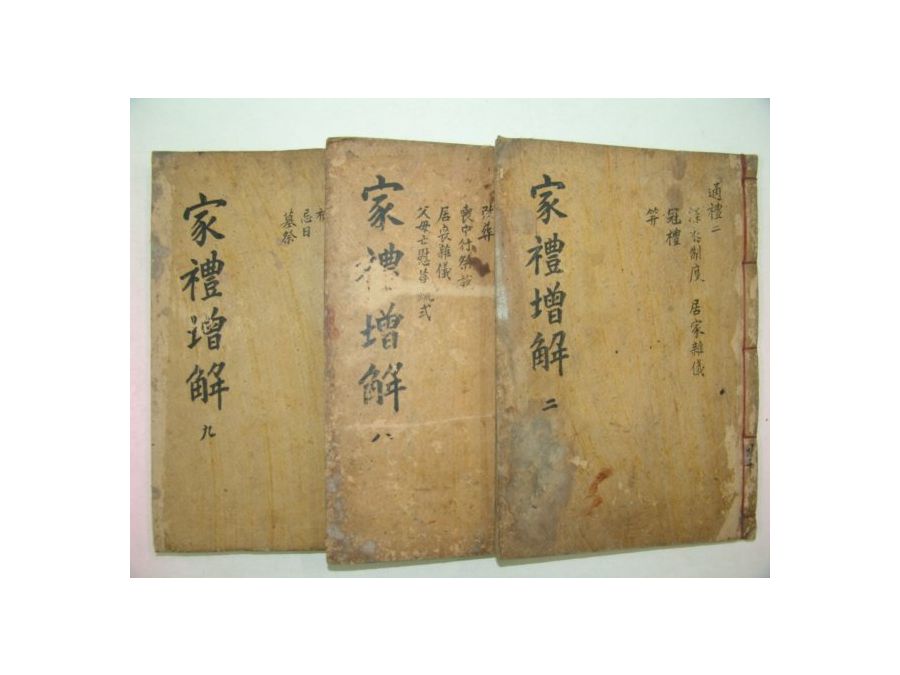 通禮二
深衣制度 居家雜儀
冠禮
笄
家禮增解
二
改葬
喪中行祭
居喪雜儀
父母亡慰荅疏式
家禮增解
八
忌日
墓祭
家禮增解
九